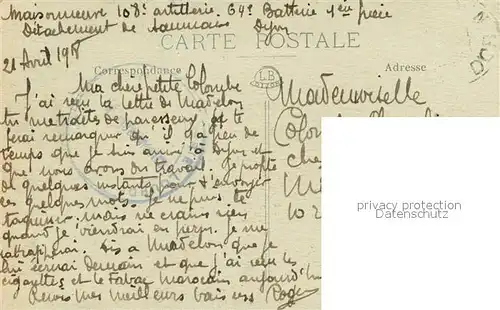 Maisonneuve 108e artillerie. 64e Batterie 1ère pièce
Détachement de Dijon
CARTE POSTALE
21 Avril 191
Correspondance
Adresse
LB
Ma chère petite Colombe
J'ai reçu la lettre de Madelon
tu me traites de paresseux et te
ferai remarquer qu'il y a peu de
temps que je suis arrivé à Dijon et
que nous avons du travail. Je profite
de quelques instants pour t'envoyer
ces quelques mots. Je ne puis te
taquiner mais ne crains rien
quand je viendrai en perm. je me
rattraperai. Dis à Madelon que je
lui écrirai demain et que j'ai reçu les
cigarettes et le tabac marocain aujourd'hui
Reçois mes meilleurs baisers Roger
Mademoiselle
Colombe
che
M
10
privacy protection
Datenschutz